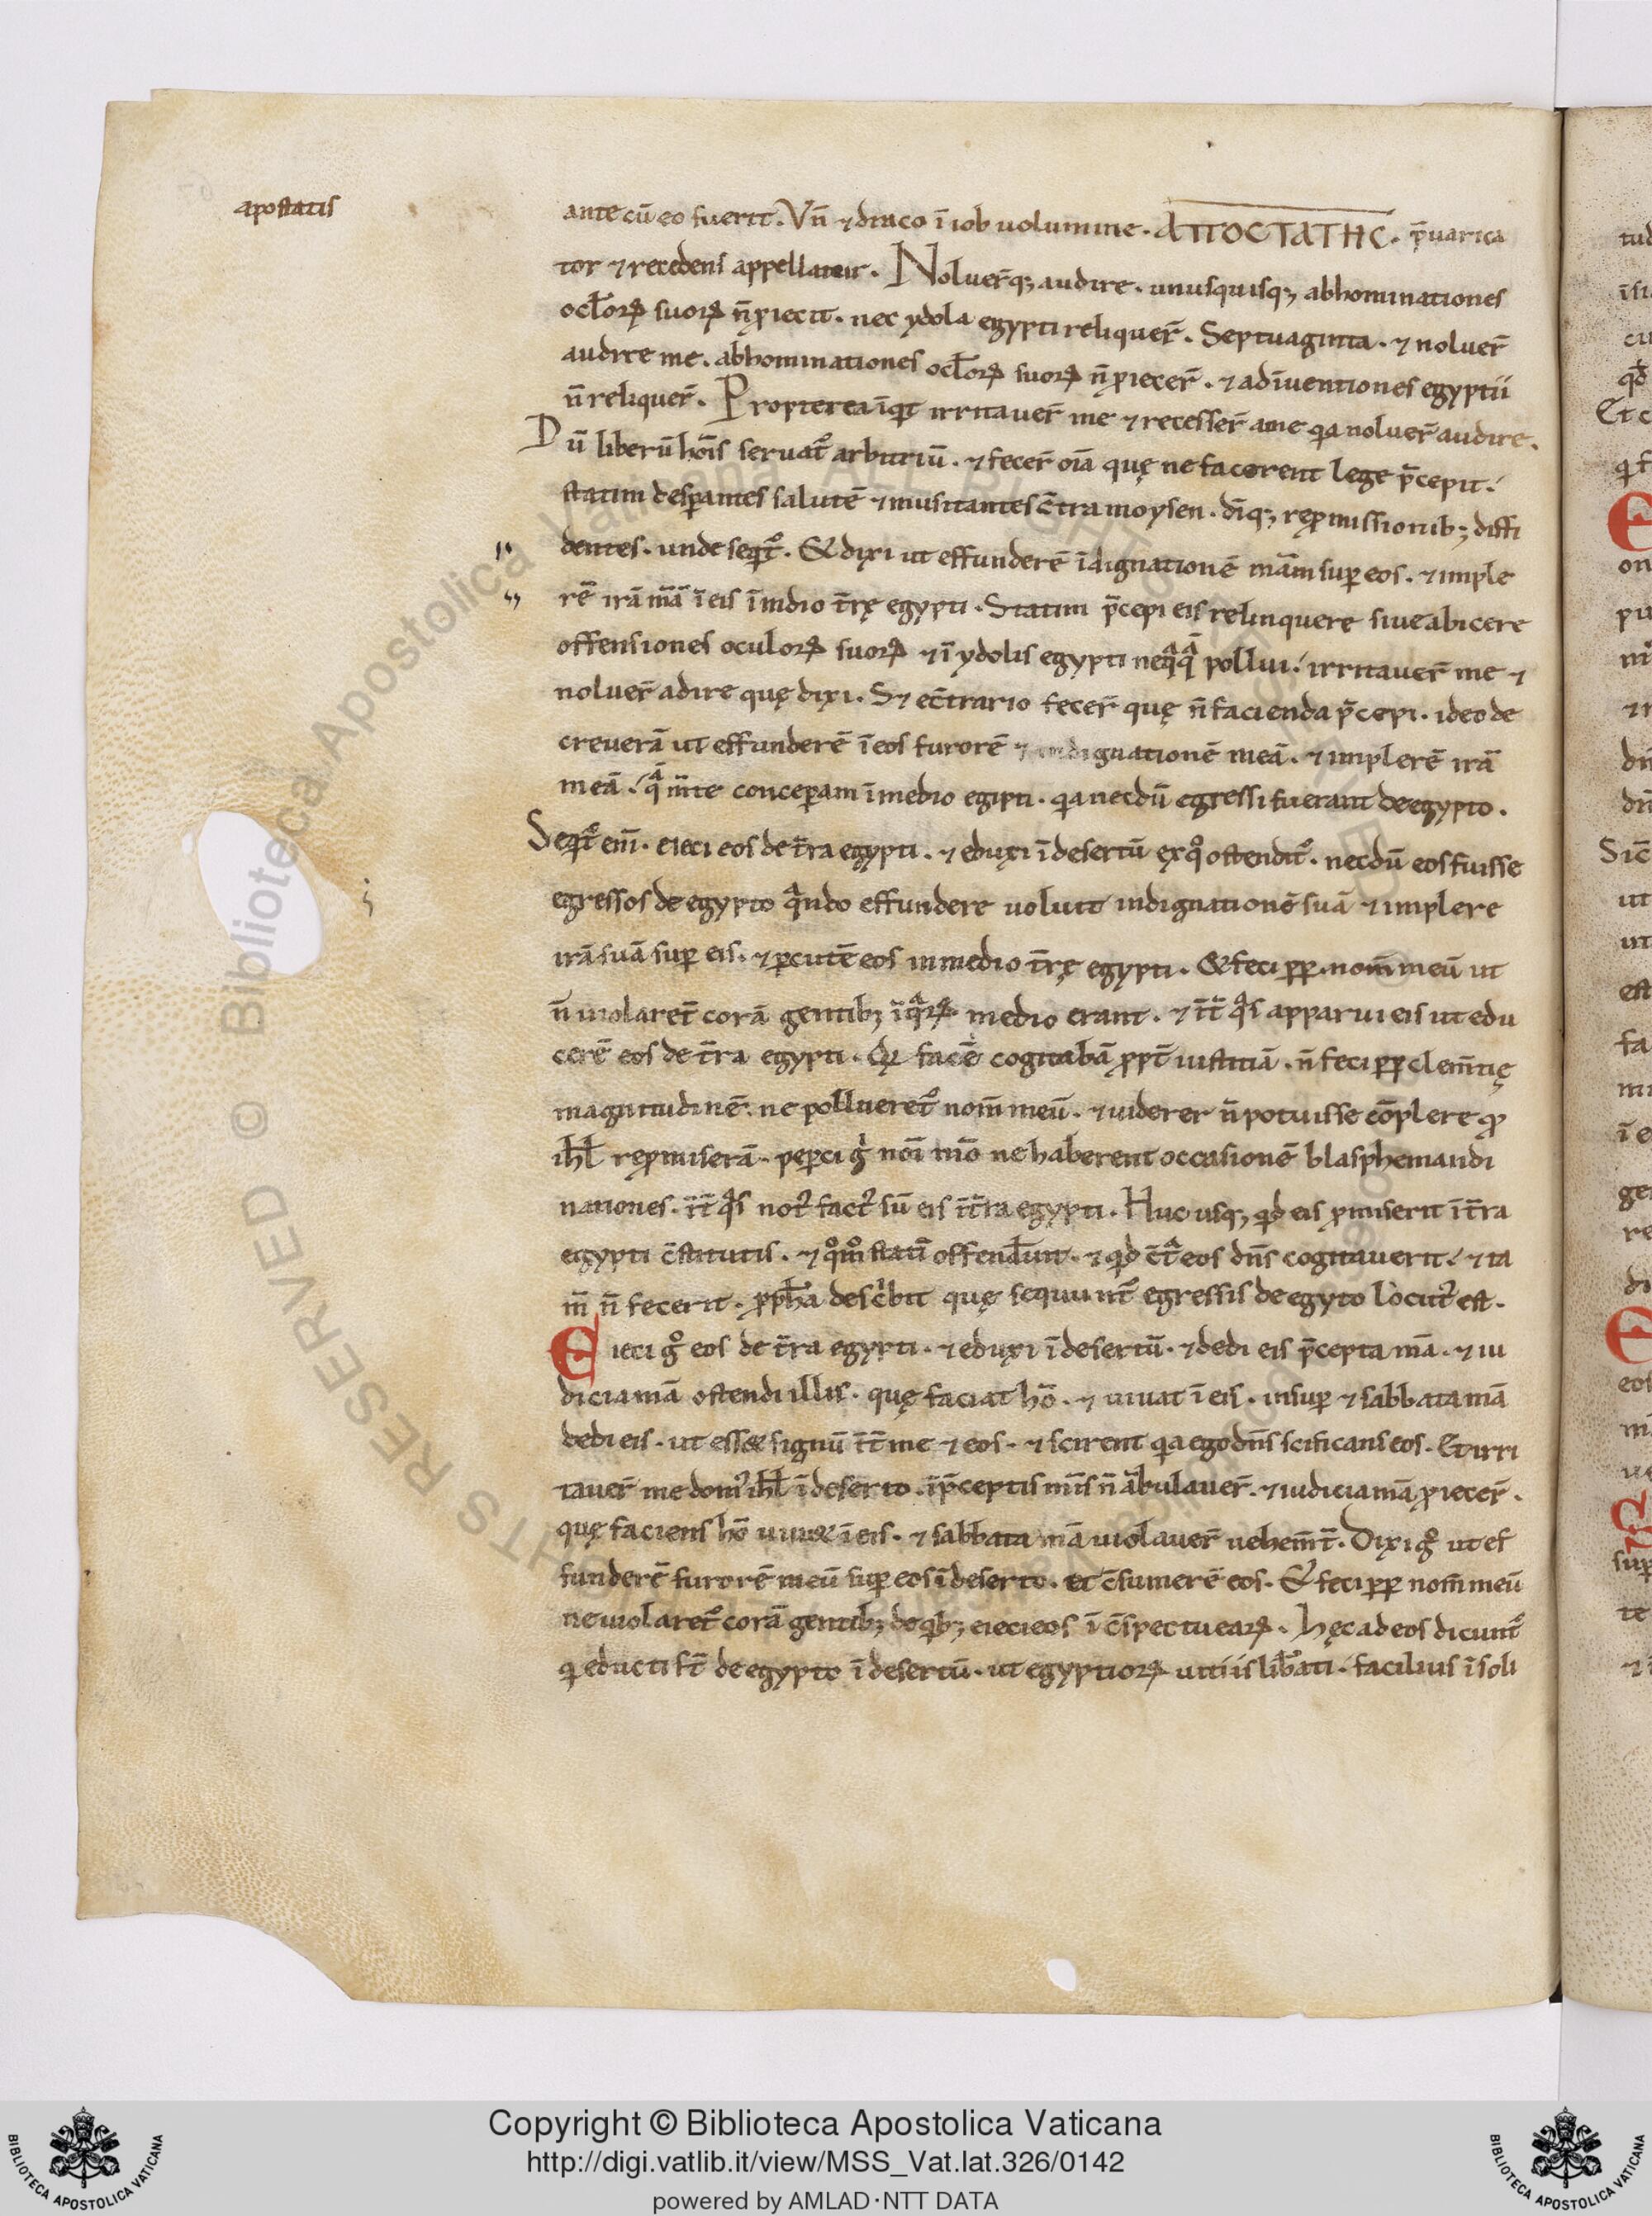 apostatis
ante cū eo fuerit. Vn̄ ⁊ draco ī iob uolumine. ΑΠΟCΤΑΤΗC. p̄uarica
tor ⁊ recedens appellatur. Noluer̄q; audire. unusquisq; abhominationes
oc̄lorꝝ suorꝝ n̄ ꝓiecit. nec ydola egypti reliquer̄. Septuaginta. ⁊ noluer̄
audire me. abhominationes oc̄lorꝝ suorꝝ n̄ ꝓiecer̄. ⁊ adīuentiones egyptii
n̄ reliquer̄. Propterea īqt irritauer̄ me ⁊ recesser̄ a me qa noluer̄ audire.
Dū liberū hoīs seruat᷒ arbitriū. ⁊ fecer̄ oīa quę ne facerent lege p̄cepit.
statim desꝑantes salutē ⁊ musitantes c̄tra moysen. dīq; reꝓmissionib; diffi
dentes. unde seqt᷒. & dixi ut effunderē īdignationē mām suꝑ eos. ⁊ imple
rē irā mā ī eis ī mdio t̄rę egypti. Statim p̄cepi eis relinquere siue abicere
offensiones oculorꝝ suorꝝ ⁊ ī ydolis egypti neqͣqͣ pollui. irritauer̄ me ⁊
noluer̄ adire quę dixi. S⁊ ec̄trario fecer̄ quę n̄ facienda p̄cepi. ideo de
creuerā ut effunderē ī eos furorē ⁊ indignationē meā. ⁊ implerē irā
meā. qͣ m̄te conceꝑam ī medio egipti. qa necdū egressi fuerant de egypto.
Seqt᷒ eni̅. eieci eos de t̄ra egypti. ⁊ eduxi ī desertū ęxqͦ ostendit᷒. necdū eos fuisse
egressos de egypto qͣndo effundere uoluit indignationē suā ⁊ implere
irā suā suꝑ eis. ⁊ ꝑcutē eos in medio t̄rę egypti. & feci ꝓp. nom̄ meū ut
n̄ uiolaret᷒ corā gentib; ī qͣrꝝ medio erant. ⁊ īt̄ qͦs apparui eis ut edu
cerē eos de t̄ra egypti. Qꝛ facē cogitabā ꝓpt̄ iustitiā. n̄ feci ꝓp clem̄tię
magnitudinē. ne pollueret᷒ nom̄ meū. ⁊ uiderer n̄ potuisse cōplere qd
ihl̄ reꝓmiserā. peꝑci gͦ noī mō ne haberent occasionē blasphemandi
nationes. īt̄ qͦs not᷒ fact᷒ sū eis ī t̄ra egypti. Huc usq; qd eis ꝓmiserit ī t̄ra
egypti c̄stitutis. ⁊ qͦmͦ statī offender̄unt. ⁊ qd c̄tͣ eos dn̄s cogitauerit. ⁊ ta
m̄ n̄ fecerit. ꝓph̄a descͥbit quę sequunt᷒ egressis de egyto locut᷒ est.
Eieci gͦ eos de t̄ra egypti. ⁊ eduxi ī desertū. ⁊ dedi eis p̄cepta mā. ⁊ iu
dicia mā ostendi illis. quę faciat hō. ⁊ uiuat ī eis. insuꝑ ⁊ sabbata mā
dedi eis. ut esset signū īt̄ me ⁊ eos. ⁊ scirent qa ego dn̄s scificans eos. Et irri
tauer̄ me dom᷒ ihl̄ ī deserto. ī p̄ceptis mīs n̄ ābulauer̄. ⁊ iudicia mā ꝓiecer̄.
quę faciens hō uiuet ī eis. ⁊ sabbata mā uiolauer̄ uehem̄t̄. Dixi gͦ ut ef
funderē furorē meū suꝑ eos ī deserto. et c̄sumerē eos. & feci ꝓp nom̄ meū
ne uiolaret᷒ corā gentib; de qb; eieci eos ī c̄spectu earꝝ. Hęc ad eos dicunt᷒
q educti st̄ de egypto ī desertū. ut egyptiorꝝ uitiis lib̄ati. facilius ī soli
Copyright © Biblioteca Apostolica Vaticana
http://digi.vatlib.it/view/MSS_Vat.lat.326/0142
powered by AMLAD·NTT DATA
BIBLIOTECA APOSTOLICA VATICANA
BIBLIOTECA APOSTOLICA VATICANA